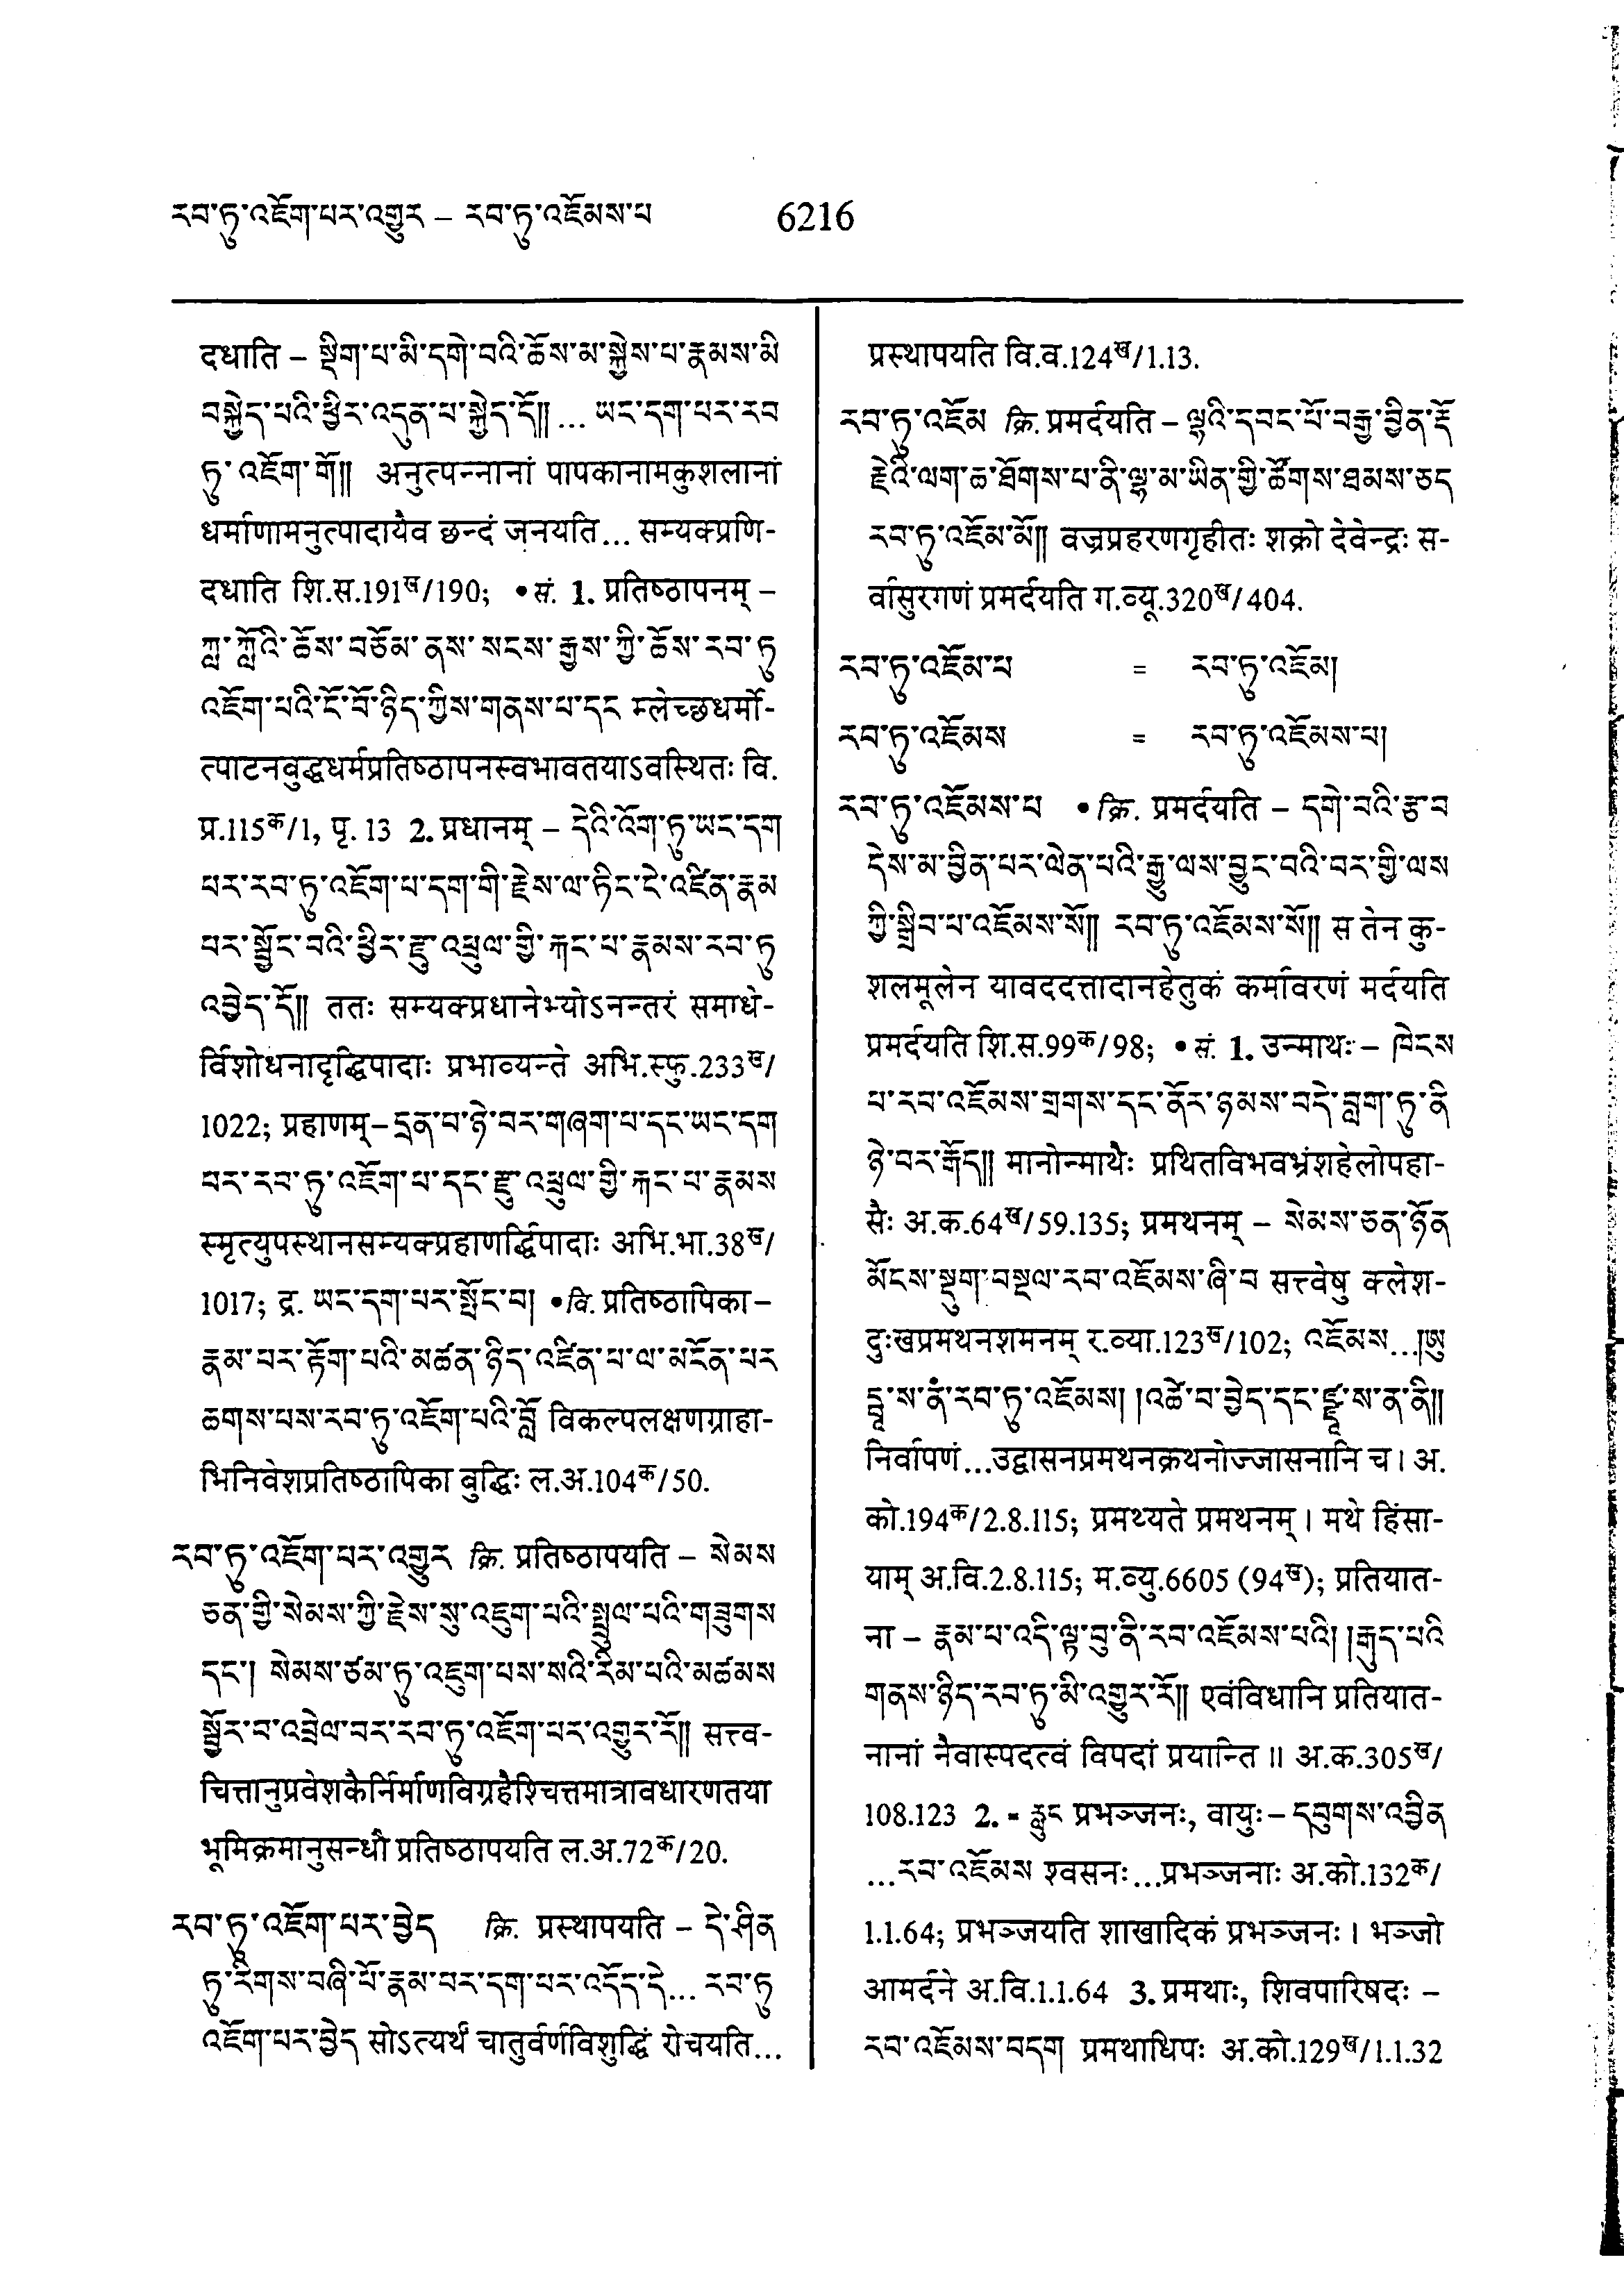 རབ་ཏུ་འཇོག་པར་འགྱུར – རབ་ཏུ་འཇོམས་པ
6216
दधाति – སྡིག་པ་མི་དགེ་བའི་ཆོས་མ་སྐྱེས་པ་རྣམས་མི
བསྐྱེད་པའི་ཕྱིར་འདུན་པ་སྐྱེད་དོ།། ... ཡང་དག་པར་རབ
ཏུ་འཇོག་གོ།། अनुत्पन्नानां पापकानामकुशलानां
धर्माणामनुत्पादायैव छन्दं जनयति... सम्यक्प्रणि-
दधाति शि.स.191ख/190; • सं. 1. प्रतिष्ठापनम् –
ཀླ་ཀློའི་ཆོས་བཅོམ་ནས་སངས་རྒྱས་ཀྱི་ཆོས་རབ་ཏུ
འཇོག་པའི་ངོ་བོ་ཉིད་ཀྱིས་གནས་པ་དང म्लेच्छधर्मो-
त्पाटनबुद्धधर्मप्रतिष्ठापनस्वभावतयाऽवस्थितः वि.
प्र.115क/1, पृ. 13 2. प्रधानम् – དེའི་འོག་ཏུ་ཡང་དག
པར་རབ་ཏུ་འཇོག་པ་དག་གི་རྗེས་ལ་ཏིང་ངེ་འཛིན་རྣམ
པར་སྦྱོང་བའི་ཕྱིར་རྫུ་འཕྲུལ་གྱི་རྐང་པ་རྣམས་རབ་ཏུ
འབྱེད་དོ།། ततः सम्यक्प्रधानेभ्योऽनन्तरं समाधे-
र्विशोधनादृद्धिपादाः प्रभाव्यन्ते अभि.स्फु.233ख/
1022; प्रहाणम् – དྲན་པ་ཉེ་བར་གཞག་པ་དང་ཡང་དག
པར་རབ་ཏུ་འཇོག་པ་དང་རྫུ་འཕྲུལ་གྱི་རྐང་པ་རྣམས
स्मृत्युपस्थानसम्यक्प्रहाणर्द्धिपादाः अभि.भा.38ख/
1017; द्र. ཡང་དག་པར་སྤོང་བ། • वि. प्रतिष्ठापिका –
རྣམ་པར་རྟོག་པའི་མཚན་ཉིད་འཛིན་པ་ལ་མངོན་པར
ཆགས་པས་རབ་ཏུ་འཇོག་པའི་བློ विकल्पलक्षणग्राहा-
भिनिवेशप्रतिष्ठापिका बुद्धिः ल.अ.104क/50.
རབ་ཏུ་འཇོག་པར་འགྱུར क्रि. प्रतिष्ठापयति – སེམས
ཅན་གྱི་སེམས་ཀྱི་རྗེས་སུ་འཇུག་པའི་སྤྲུལ་པའི་གཟུགས
དང་། སེམས་ཙམ་ཏུ་འཇུག་པས་སའི་རིམ་པའི་མཚམས
སྦྱོར་བ་འབྲེལ་བར་རབ་ཏུ་འཇོག་པར་འགྱུར་རོ།། सत्त्व-
चित्तानुप्रवेशकैर्निर्माणविग्रहैश्चित्तमात्रावधारणतया
भूमिक्रमानुसन्धौ प्रतिष्ठापयति ल.अ.72क/20.
རབ་ཏུ་འཇོག་པར་བྱེད क्रि. प्रस्थापयति – དེ་ཤིན
ཏུ་རིགས་བཞི་པོ་རྣམ་པར་དག་པར་འདོད་དེ... རབ་ཏུ
འཇོག་པར་བྱེད सोऽत्यर्थं चातुर्वर्णविशुद्धिं रोचयति...
प्रस्थापयति वि.व.124ख/1.13.
རབ་ཏུ་འཇོམ क्रि. प्रमर्दयति – ལྷའི་དབང་པོ་བརྒྱ་བྱིན་རྡོ
རྗེའི་ལག་ཆ་ཐོགས་པ་ནི་ལྷ་མ་ཡིན་གྱི་ཚོགས་ཐམས་ཅད
རབ་ཏུ་འཇོམ་མོ།། वज्रप्रहरणगृहीतः शक्रो देवेन्द्रः स-
र्वासुरगणं प्रमर्दयति ग.व्यू.320ख/404.
རབ་ཏུ་འཇོམ་པ = རབ་ཏུ་འཇོམ།
རབ་ཏུ་འཇོམས = རབ་ཏུ་འཇོམས་པ།
རབ་ཏུ་འཇོམས་པ • क्रि. प्रमर्दयति – དགེ་བའི་རྩ་བ
དེས་མ་བྱིན་པར་ལེན་པའི་རྒྱུ་ལས་བྱུང་བའི་བར་གྱི་ལས
ཀྱི་སྒྲིབ་པ་འཇོམས་སོ།། རབ་ཏུ་འཇོམས་སོ།། स तेन कु-
शलमूलेन यावददत्तादानहेतुकं कर्मावरणं मर्दयति
प्रमर्दयति शि.स.99क/98; • सं. 1. उन्माथः – ཁེངས
པ་རབ་འཇོམས་གྲགས་དང་ནོར་ཉམས་བདེ་བླག་ཏུ་ནི
ཉེ་བར་རྒོད།། मानोन्माथैः प्रथितविभवभ्रंशहेलोपहा-
सैः अ.क.64ख/59.135; प्रमथनम् – སེམས་ཅན་ཉོན
མོངས་སྡུག་བསྔལ་རབ་འཇོམས་ཞི་བ सत्त्वेषु क्लेश-
दुःखप्रमथनशमनम् र.व्या.123ख/102; འཇོམས...།ཨུ
དྭཱ་ས་ནཾ་རབ་ཏུ་འཇོམས། །འཚེ་བ་བྱེད་དང་ཛྫཱ་ས་ན་ནི།།
निर्वापणं...उद्वासनप्रमथनक्रथनोज्जासनानि च। अ.
को.194क/2.8.115; प्रमथ्यते प्रमथनम्। मथे हिंसा-
याम् अ.वि.2.8.115; म.व्यु.6605 (94ख); प्रतियात-
ना – རྣམ་པ་འདི་ལྟ་བུ་ནི་རབ་འཇོམས་པའི། །རྒུད་པའི
གནས་ཉིད་རབ་ཏུ་མི་འགྱུར་རོ།། एवंविधानि प्रतियात-
नानां नैवास्पदत्वं विपदां प्रयान्ति ॥ अ.क.305ख/
108.123 2. = རླུང प्रभञ्जनः, वायुः – དབུགས་འབྱིན
...རབ་འཇོམས श्वसनः...प्रभञ्जनाः अ.को.132क/
1.1.64; प्रभञ्जयति शाखादिकं प्रभञ्जनः। भञ्जो
आमर्दने अ.वि.1.1.64 3. प्रमथाः, शिवपारिषदः –
རབ་འཇོམས་བདག प्रमथाधिपः अ.को.129ख/1.1.32